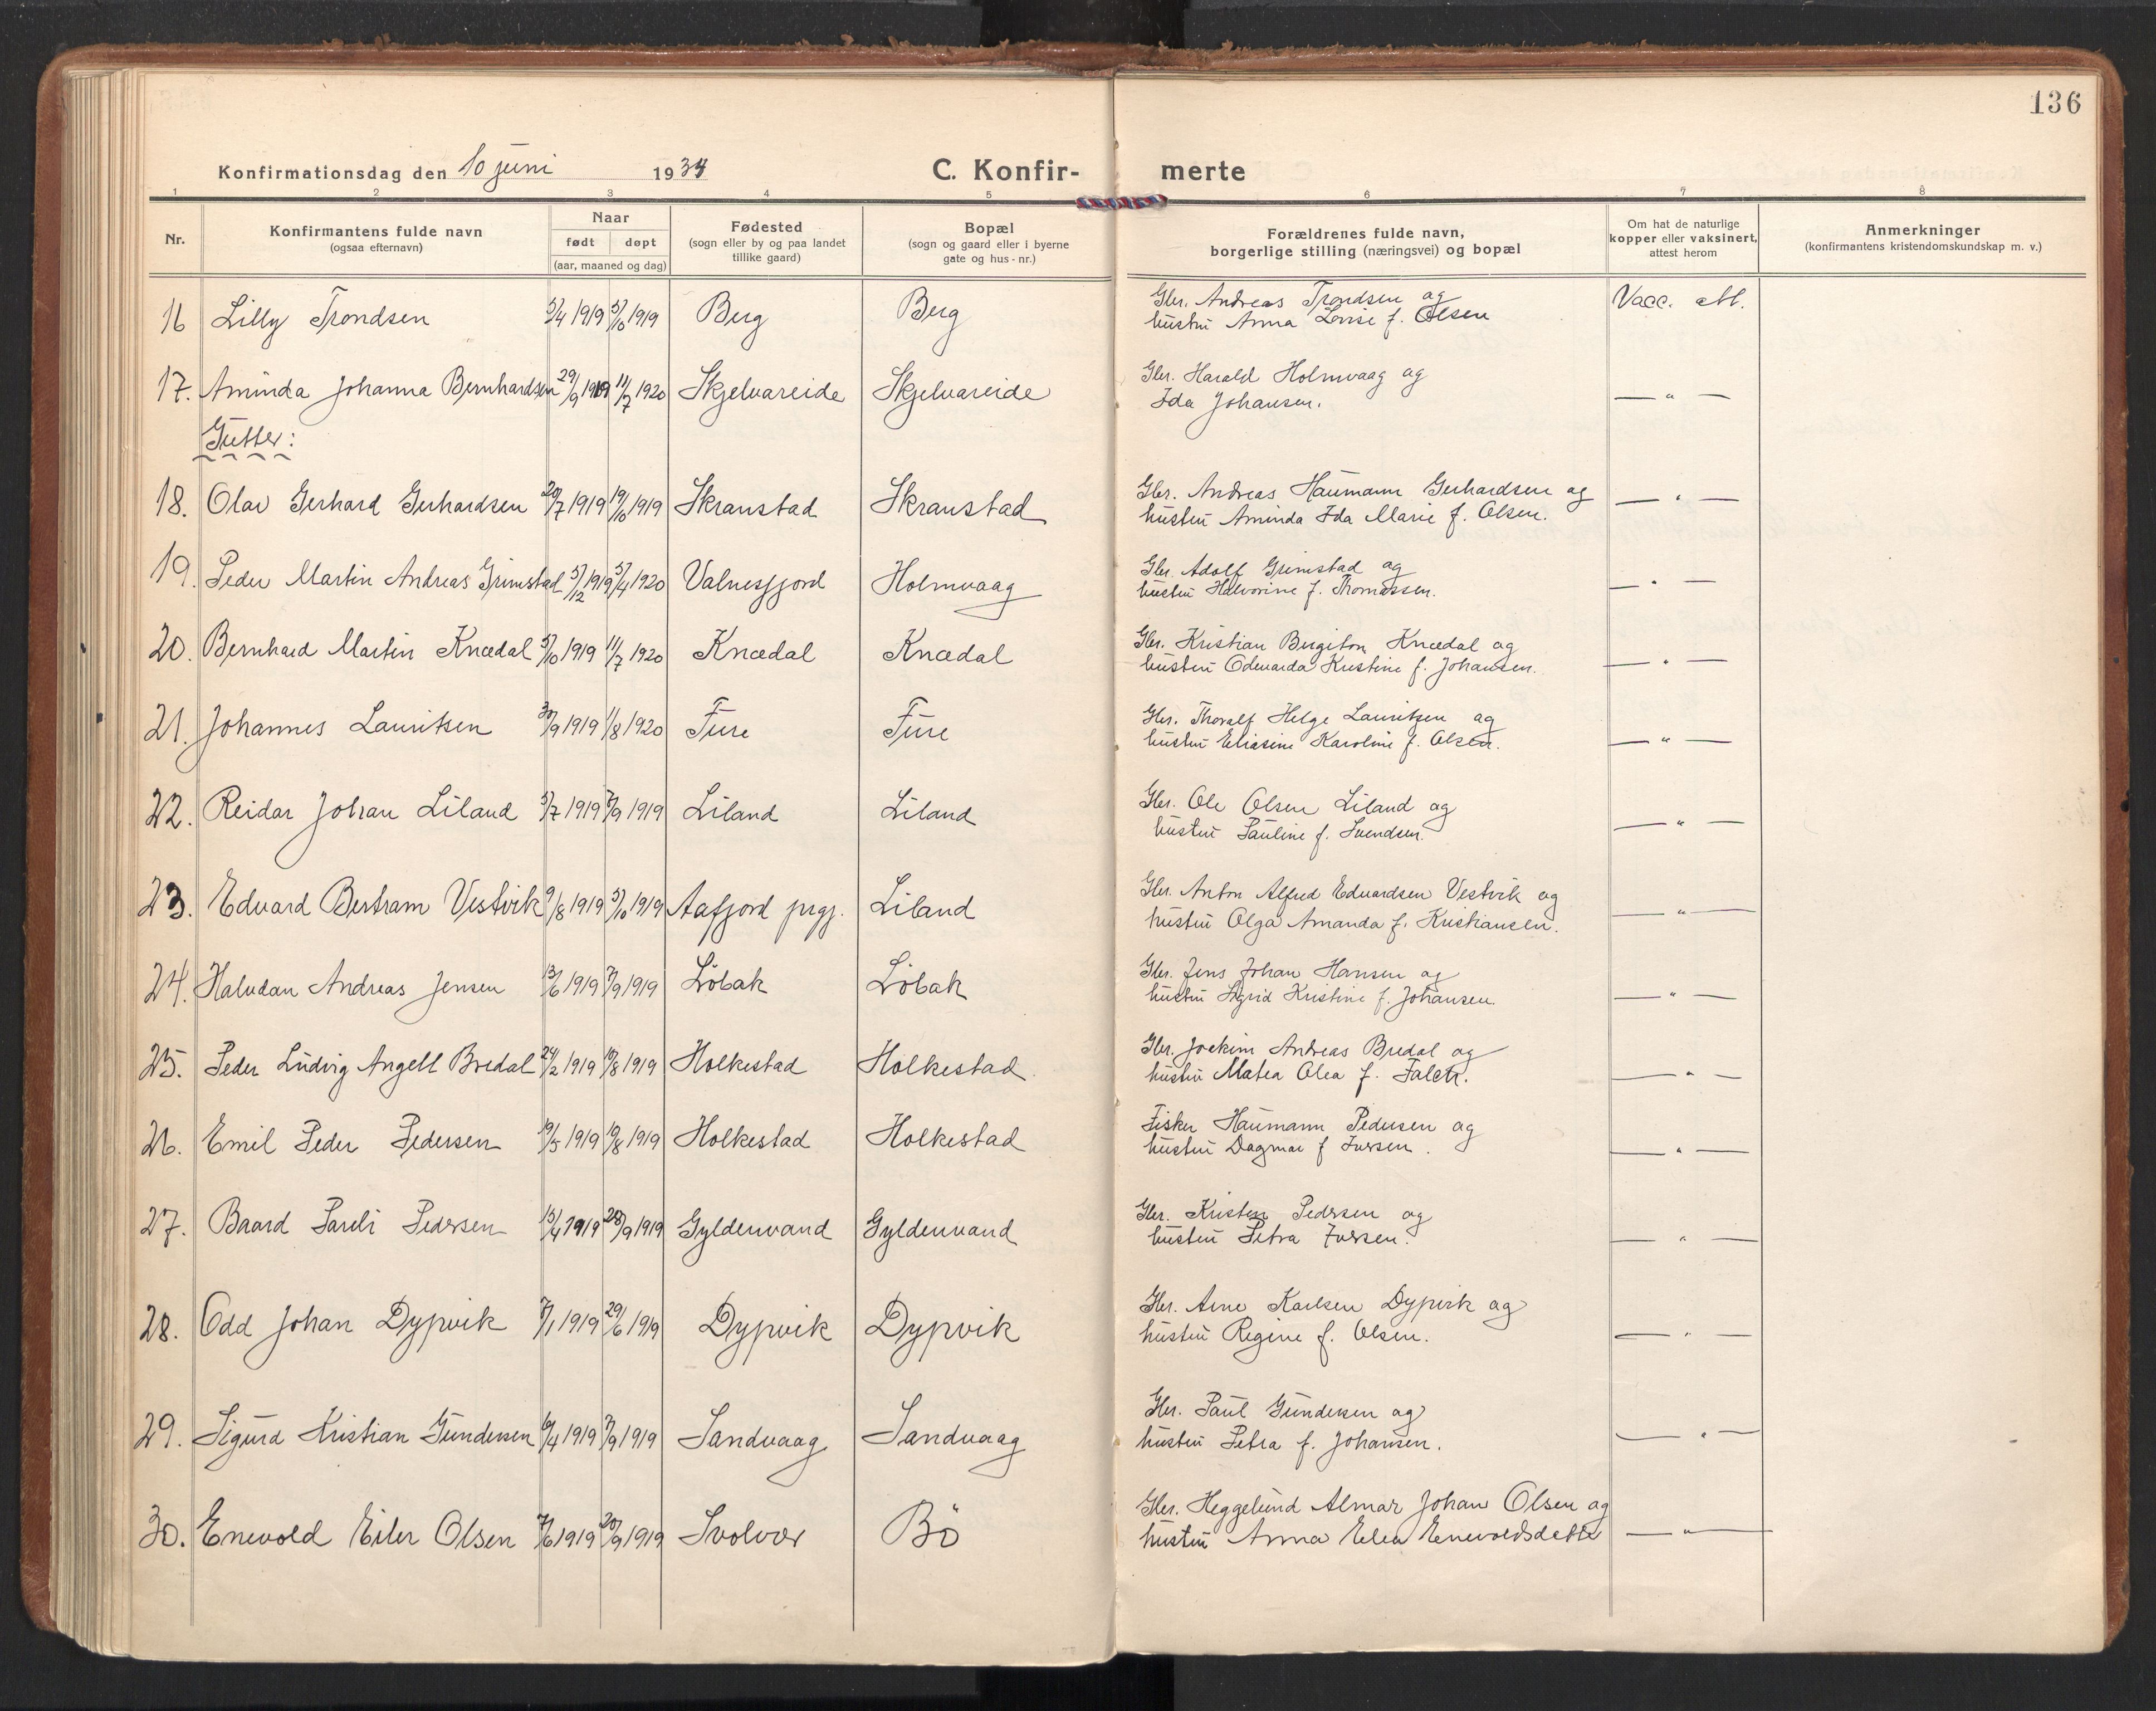 136
Konfirmationsdag den 10 juni 1934 C. Konfir- merte
1 2 3 4 5 6 7 8
Nr. Konfirmantens fulde navn (ogsaa efternavn) Naar født døpt (aar, maaned og dag) Fødested (sogn eller by og paa landet tillike gaard) Bopæl (sogn og gaard eller i byerne gate og hus-nr.) Forældrenes fulde navn, borgerlige stilling (næringsvei) og bopæl Om hat de naturlige kopper eller vaksinert, attest herom Anmerkninger (konfirmantens kristendomskundskap m. v.)
16 Lilly Trondsen 5/4 1919 5/10 1919 Berg Berg Gbr. Andreas Trondsen og Vacc. att.
hustru Anna Lovise f. Olsen
17. Aminda Johanna Bernhardsen 29/9 1919 11/7 1920 Skjelvareide Skjelvareide Gbr. Harald Holmvaag og
Ida Johansen. — " —
Gutter:
18. Olav Gerhard Gerhardsen 20/7 1919 19/10 1919 Skranstad Skranstad Gbr. Andreas Haumann Gerhardsen og — " —
hustru Aminda Ida Marie f. Olsen.
19. Peder Martin Andreas Grimstad 5/12 1919 5/4 1920 Valnesfjord Holmvaag Gbr. Adolf Grimstad og
hustru Halvorine f. Thomassen. — " —
20. Bernhard Martin Knædal 5/10 1919 11/7 1920 Knædal Knædal Gbr. Kristian Bergiton Knædal og
hustru Edvarda Kristine f. Johansen. — " —
21. Johannes Lauritsen 30/9 1919 1/8 1920 Fure Fure Gbr. Thoralf Helge Lauritsen og
hustru Eliasine Karoline f. Olsen. — " —
22. Reidar Johan Liland 5/7 1919 7/9 1919 Liland Liland Gbr. Ole Olsen Liland og
hustru Pauline f. Svendsen. — " —
23. Edvard Bertram Vestvik 9/8 1919 5/10 1919 Aafjord prgj. Liland Gbr. Anton Alfred Edvardsen Vestvik og
hustru Olga Amanda f. Kristiansen. — " —
24. Halvdan Andreas Jensen 13/6 1919 7/9 1919 Löbak Löbak Gbr. Jens Johan Hansen og
hustru Sigrid Kristine f. Johansen. — " —
25. Peder Ludvig Angell Bredal 24/2 1919 10/8 1919 Holkestad Holkestad Gbr. Joakim Andreas Bredal og
hustru Matea Olea f. Falch. — " —
26. Emil Peder Pedersen 19/5 1919 10/8 1919 Holkestad Holkestad Fisker Haumann Pedersen og
hustru Dagmar f Iversen. — " —
27. Baard Pareli Pedersen 15/4 1919 28/9 1919 Gyldenvand Gyldenvand Gbr. Kristen Pedersen og
hustru Petra Iversen. — " —
28. Odd Johan Dypvik 7/1 1919 29/6 1919 Dypvik Dypvik Gbr. Arne Karlsen Dypvik og
hustru Regine f. Olsen. — " —
29. Sigurd Kristian Gundersen 6/4 1919 7/9 1919 Sandvaag Sandvaag Gbr. Paul Gundersen og
hustru Petra f. Johansen. — " —
30. Enevold Eiler Olsen 7/6 1919 20/9 1919 Svolvær Bö Gbr. Heggelund Almar Johan Olsen og
hustru Anna Elen Enevoldsdatter — " —